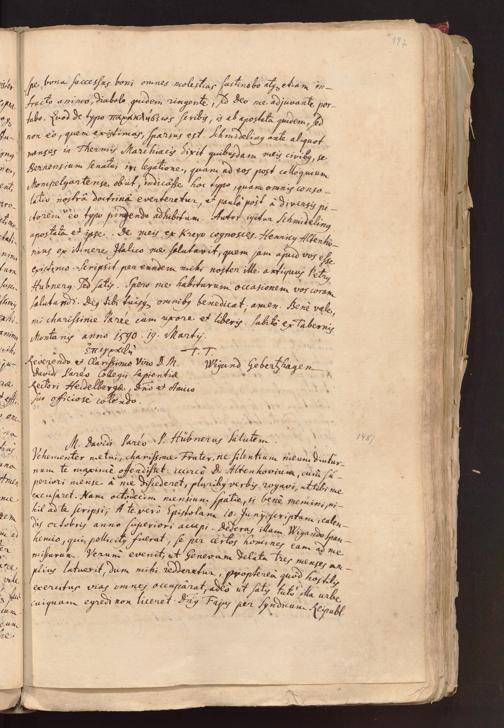 197
spe, bona successus boni omnes molestias sustinebo atque etiam in-
fracto animo, diabolo quidem ringente, sed Deo me adjuvante por-
tabo. Quod de typo scribis, is ab apostata quidem, sed
non eo, quem existimas, sparsus est. Schmidelinus ante aliquot
menses in Thermis Marchiacis dixit quibusdam meis civibus, se
Bernensium senatus in legatione, quam ad eos post colloquium
Mompelgartense obiit, indicasse hoc typo, quam omnis conso-
latio nostra doctrina everteretur, et paulo post a diversis pi-
ctorem eo typo pingendo adhibitum. Autor igitur Schmidelinus
apostata et ipse. De meis ex Kreyo cognosces. Henricus Altenho-
vius ex itinere Italico me salutavit, quem jam apud vos esse
existimo. Scripsit per eundem mihi noster ille antiquus Petrus
Hubnerus sed satis. Spero me habiturum occasionem vos coram
salutandi. Deus tibi tuisque omnibus benedicat, amen. Bene vale,
mi charissime Paree cum uxore et liberis. Subito ex Tabernis
Montanis anno 1590. 19. Martij
T. T.
Reverendo et Clarissimo Viro D. M.
Wigand
David Pareo Collegii Sapientiae
Rectori Heidelbergae, Dno et Amico
suo officiose colendo.
M. Davidi Pareo P. Hübnerus Salutem
1487
Vehementer metui, charissime Frater, ne silentium meum diutur-
num te maxime offendisset itaque D. Altenhovium, cum su-
periori mense a me discederet, pluribus verbis rogavi, ut tibi me
excusaret. Nam octodecim mensium spatio, si bene memini, ni-
hil ad te scripsi; A te vero Epistolam 10. Junij scriptam, calen-
dis octobris anno superiori accepi. Dederas illam Wigando Span-
hemio, qui, pollicitus fuerat, se per certos homines eam ad me
missurum. Verum evenit, ut Genevam delata tres menses am-
plius latuerit dum mihi redderetur, propterea quod hostilis
exercitus vias omnes occuparat, adeo ut satis tuto illa urbe
cuiquam egredi non liceret. Dnus Fajus per Syndicum Reipubl.